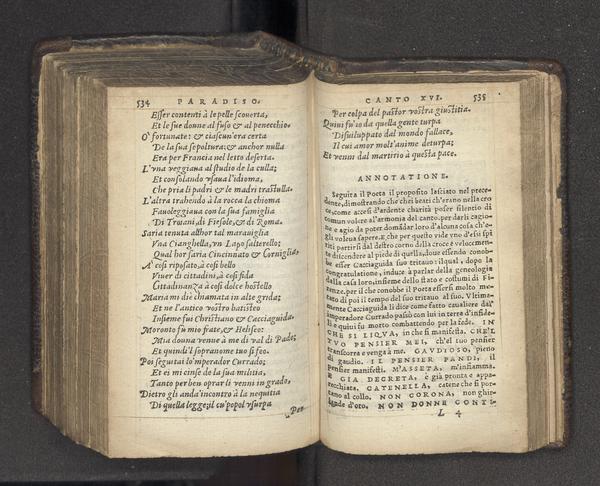 534
PARADISO.
Esser contenti à le pelle scouerta,
Et le sue donne al fuso & al penecchio.
O' fortunate: & ciascun'era certa
De la sua sepoltura: & anchor nulla
Era per Francia nel letto deserta.
L'vna veggiaua al studio de la culla;
Et consolando vsaua l'idioma,
Che pria li padri & le madri trastulla.
L'altra trahendo à la rocca la chioma
Fauoleggiaua con la sua famiglia
Di Troiani, di Fiesole, & di Roma.
Saria tenuta allhor tal marauiglia
Vna Cianghella, vn Lapo salterello;
Qual hor saria Cincinnato & Corniglia.
A' così riposato, à così bello
Viuer di cittadini, à così fida
Cittadinanza à così dolce hostello
Maria mi diè chiamata in alte grida;
Et ne l'antico vostro batisteo
Insieme fui Christiano & Cacciaguida.
Moronto fù mio frate, & Heliseo:
Mia donna venne à me di val di Pado;
Et quindi'l sopranome tuo si feo.
Poi seguitai lo'mperator Currado;
Et ei mi cinse de la sua militia,
Tanto per ben oprar li venni in grado,
Dietro gli anda'incontro à la nequitia
Di quella legge; il cu'popol vsurpa
Per
CANTO XVI.
535
Per colpa del pastor vostra giustitia.
Quiui fu'io da quella gente turpa
Disuiluppato dal mondo fallace,
Il cui amor molt'anime deturpa;
Et venni dal martirio à questa pace.
ANNOTATIONE.
Seguita il Poeta il proposito lasciato nel prece-
dente, dimostrando che chei beati ch'erano nella cro
ce, come accesi d'ardente charità poser silentio di
comun volere al'armonia del canto, per darli cagio-
ne e agio da poter domādar loro d'alcuna cosa ch'e-
gli voleua sapere. E che per questo vide vno d'essi spi
riti partirsi dal destro corno della croce e velocemen-
te discendere al piede di quella, doue essendo conob-
be esser Cacciaguida suo tritauo: ilqual, dopo la
congratulatione, induce à parlar della geneologia
dalla casa loro, insieme dello stato e costumi di Fi-
renze, per il che conobbe il Poeta essersi molto mu-
tato di poi il tempo del suo tritauo al suo. Vltima-
mente Cacciaguida li dice come fatto caualiere dal'
imperadore Currado passò con lui in terra d'infide-
li e quiui fu morto combattendo per la fede. IN
CHE SI LIQVA, in che si manifesta, CHE'L
TVO PENSIER MEI, ch'el tuo pensier
transcorra e venga à me. GAVDIOSO, pieno
di gaudio. IL PENSIER PANDI, il
pensier manifesti. M'ASSETA, m'infiamma.
E GIA DECRETA, è già pronta e appa-
recchiata. CATENELLA, catene che si por-
tano al collo. NON CORONA, non ghir-
lande d'oro. NON DONNE CONTI-
L 4